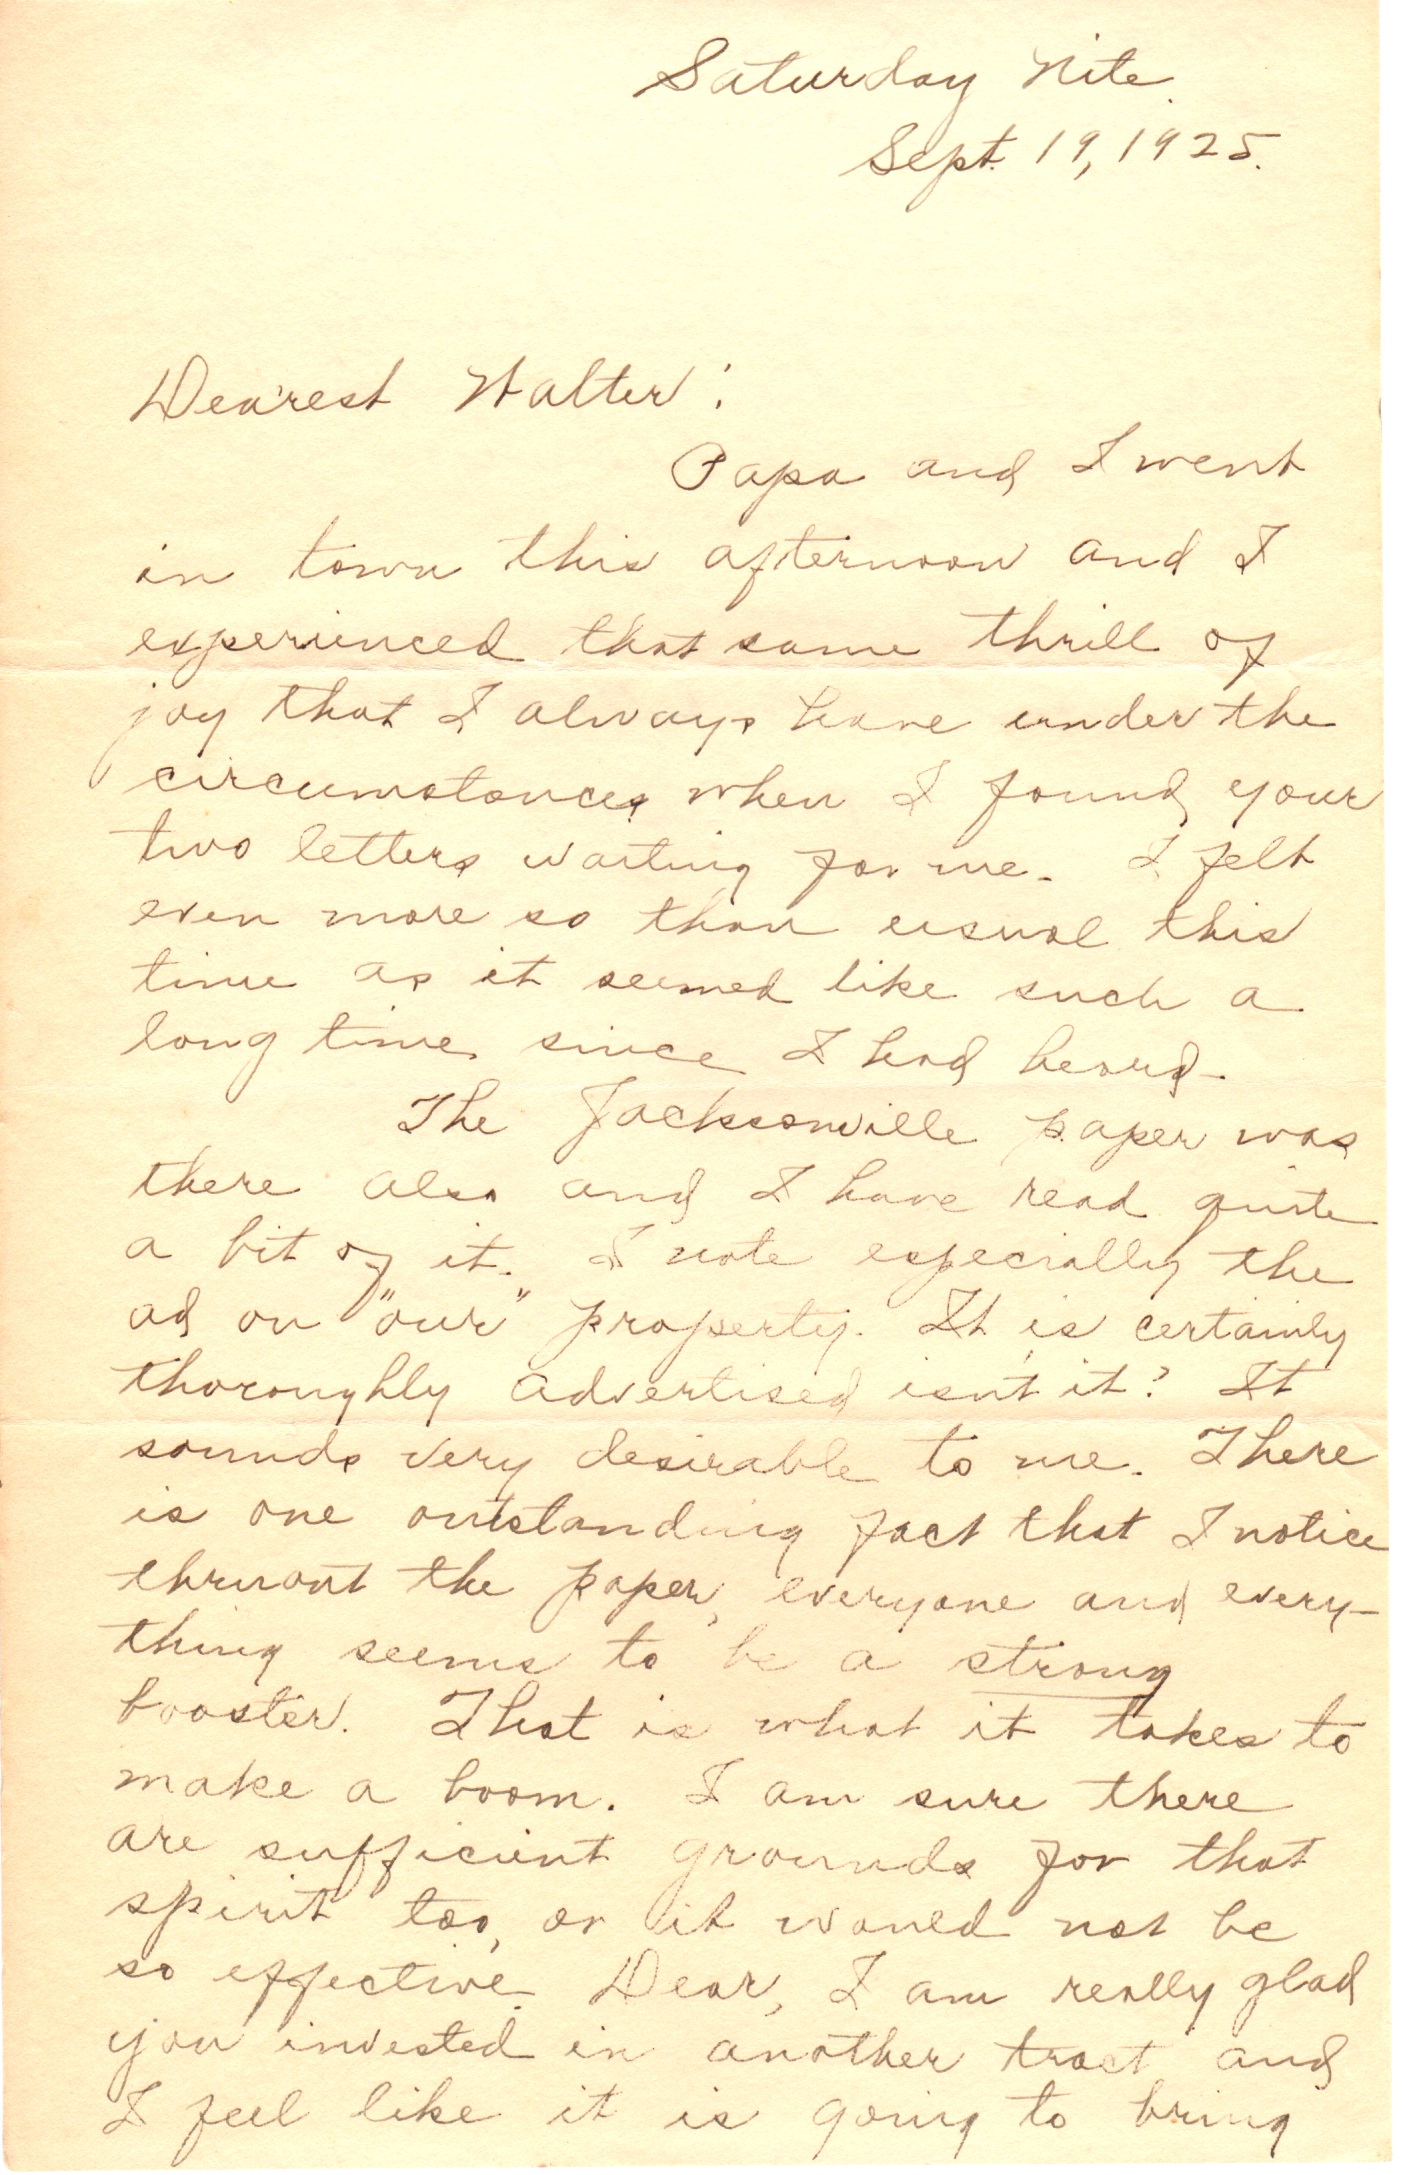 Saturday Nite.
Sept. 19, 1925.
Dearest Walter:
Papa and I went
in town this afternoon and I
experienced that same thrill of
joy that I always have under the
circumstances when I found your
two letters waiting for me. I felt
even more so than usual this
time as it seemed like such a
long time since I had heard.
The Jacksonville paper was
there also and I have read quite
a bit of it. I note especially the
ad on "our" property. It is certainly
thoroughly advertised isn't it? It
sounds very desirable to me. There
is one outstanding fact that I notice
thruout the paper, everyone and every-
thing seems to be a strong
booster. That is what it takes to
make a boom. I am sure there
are sufficient grounds for that
spirit too, or it would not be
so effective. Dear, I am really glad
you invested in another tract and
I feel like it is going to bring